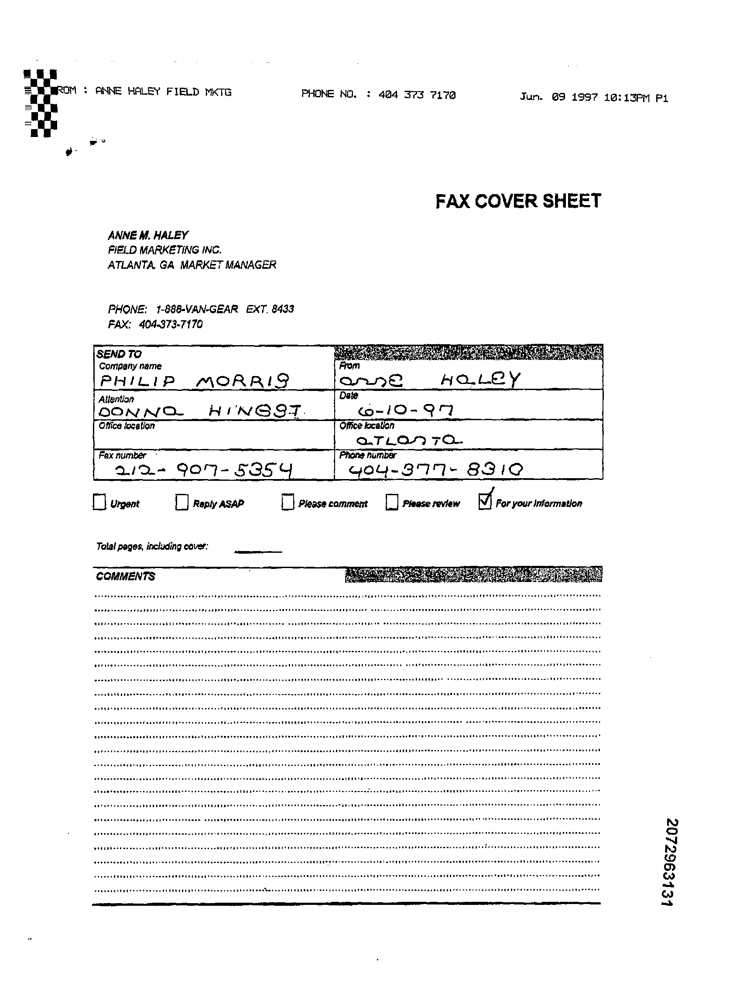 ROM : ANNE HALEY FIELD MKTG PHONE NO. : 404 373 7170 Jun. 09 1997 10:13PM P1
FAX COVER SHEET
ANNE M. HALEY
FIELD MARKETING INC.
ATLANTA, GA MARKET MANAGER
PHONE: 1-888-VAN-GEAR EXT. 8433
FAX: 404-373-7170
SEND TO
Company name From
PHILIP MORRIS ANNE HALEY
Attention Date
DONNA HINGST 6-10-97
Office location Office location
ATLANTA
Fax number Phone number
212-907-5354 404-377-8310
Urgent Reply ASAP Please comment Please review For your Information
Total pages, including cover:
COMMENTS
2072963131